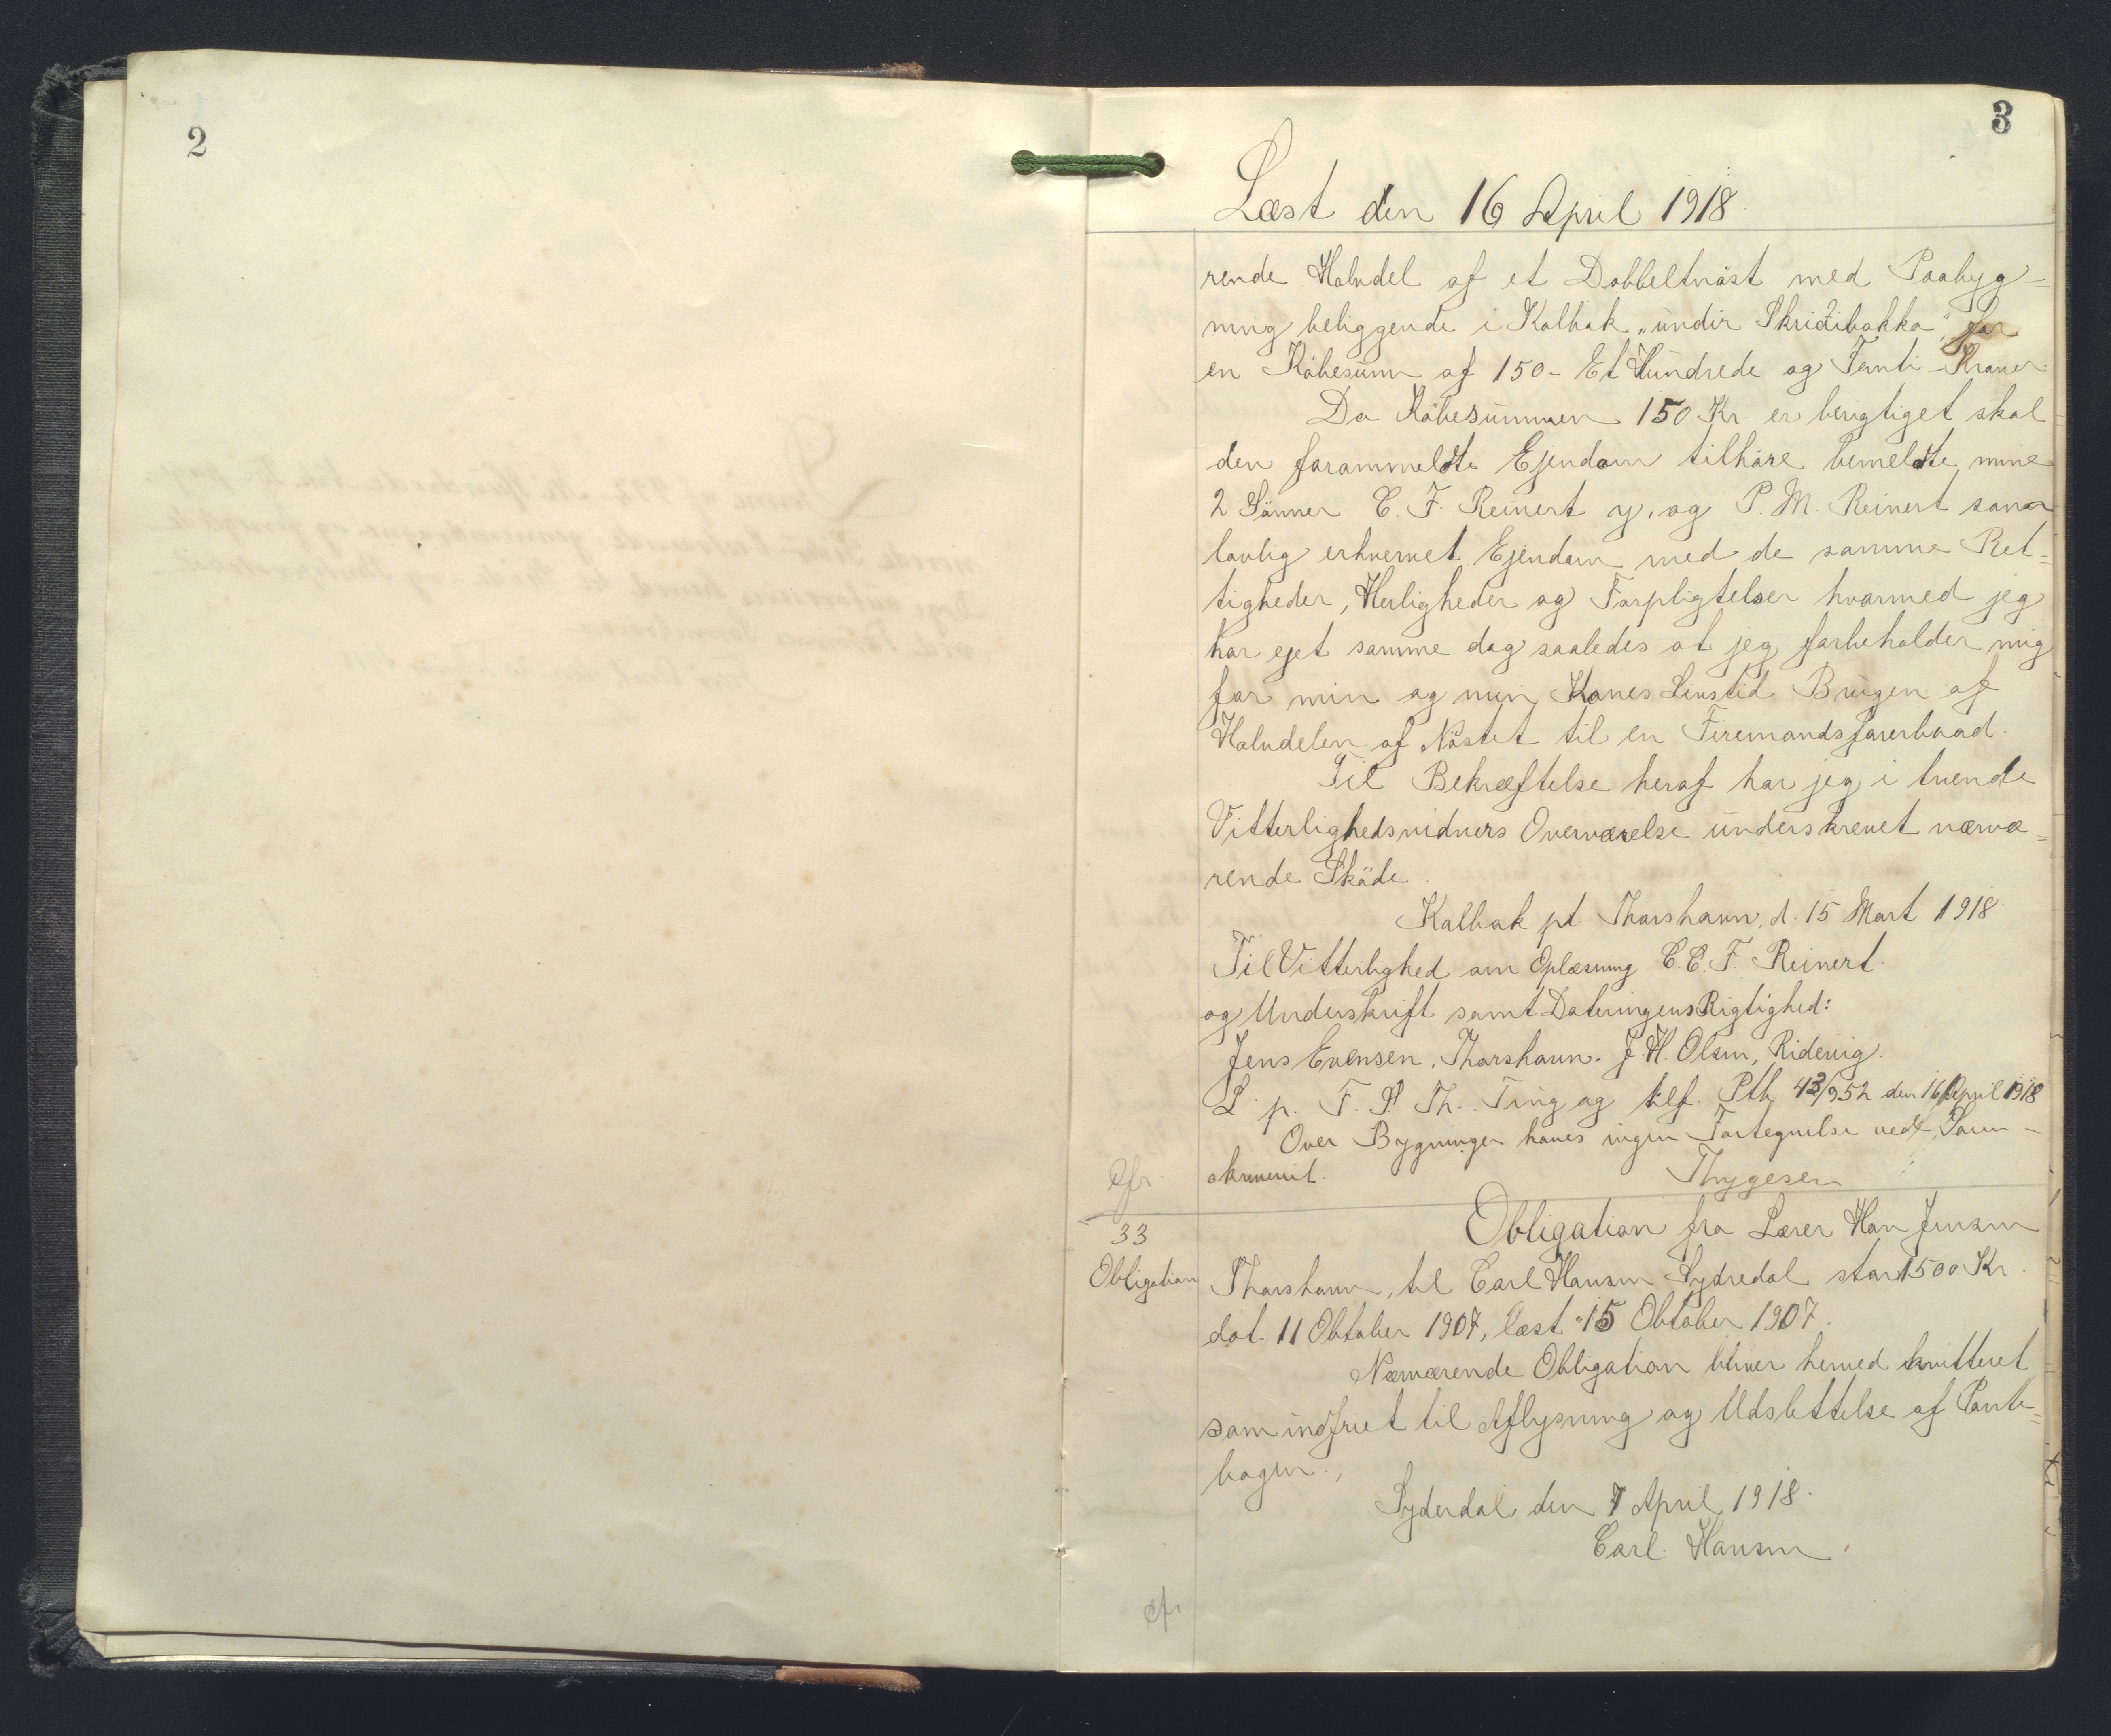 2
3
Læst den 16 April 1918
rende Halvdel af et Dobbeltnöst med Paabyg-
ning beliggende i Kalbak „undir Skriđibakka“ for
en Köbesum af 150 - Et Hundrede og Femti - Kroner
Da Köbesummen 150 Kr er berigtiget skal
den forommeldte Ejendom tilhöre bemeldte mine
2 Sönner C. F. Reinert og P. M. Reinert som
lovlig erhvervet Ejendom med de samme Ret-
tigheder, Herligheder og Forpligtelser hvormed jeg
har ejet samme dog saaledes at jeg forbeholder mig
for min og min Kones Livstid Brugen af
Halvdelen af Nöstet til en Firemandsfarerbaad.
Til Bekræftelse heraf har jeg i tvende
Vitterlighedsvidners Overværelse underskrevet nærvæ-
rende Sköde.
Kalbak pt. Thorshavn, d. 15 Mart 1918.
Til Vitterlighed om Oplæsning C. E. F. Reinert.
og Underskrift samt Dateringens Rigtighed:
Jens Evensen, Thorshavn. J. H. Olsen, Ridevig.
L. p. F. S Th. Ting og tilf. Ptb 43/952 den 16 April 1918
Over Bygninger haves ingen Fortegnelse ved Soren-
skriveriet.
Thygesen
Cfr
33
Obligation
Obligation fra Lærer Han Jensen
Thorshavn, til Carl Hansen Sydredal stor 1500 Kr.
dat. 11 Oktober 1907, læst 15 Oktober 1907.
Nærværende Obligation bliver herved kvitteret
som indfriet til Aflysning og Udslettelse af Pante-
bogen.,
Syderdal den 7 April 1918.
Carl Hansen.
cfr